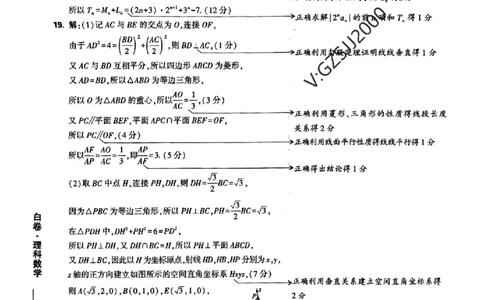 所以 Tₙ=Mₙ+Lₙ=(2n+3)·2ⁿ⁺¹+3ⁿ-7.(12分)
19. 解:(1)记AC与BE的交点为O,连接OF,
由于AD²=4=(BD/2)²+(AC/2)²,则BD⊥AC,(1分)
又AC与BD互相平分,所以四边形ABCD为菱形,
又AD=BD,所以△ABD为等边三角形,
所以O为△ABD的重心,所以AO/AC=1/3,(3分)
又PC∥平面BEF,平面APC∩平面BEF=OF,
所以PC∥OF,(4分)
所以AF/AP=AO/AC=1/3,即AP/AF=3.(5分)
(2)取BC中点H,连接PH,DH,则DH=√3/2BC=√3,
因为△PBC为等边三角形,所以PH⊥BC,PH=√3/2BC=√3,
在△PDH中,DH²+PH²=6=PD²,
所以PH⊥DH,又DH∩BC=H,所以PH⊥平面ABCD,
又DH⊥BC,因此以H为坐标原点,射线HD,HB,HP分别为x,y,
z轴的正方向建立如图所示的空间直角坐标系Hxyz,(7分)
则A(√3,2,0),B(0,1,0),E(√3,1,0),
P
正确求解{2ⁿaₙ}的前n项和Tₙ得1分
正确利用勾股定理证明线线垂直得1分
正确利用菱形、三角形的性质得线段长度
关系得2分
正确利用线面平行性质得线线平行得1分
正确得出结论得1分
正确利用垂直关系建立空间直角坐标系得
2分
V:GZSJJ2000
白卷·理科数学